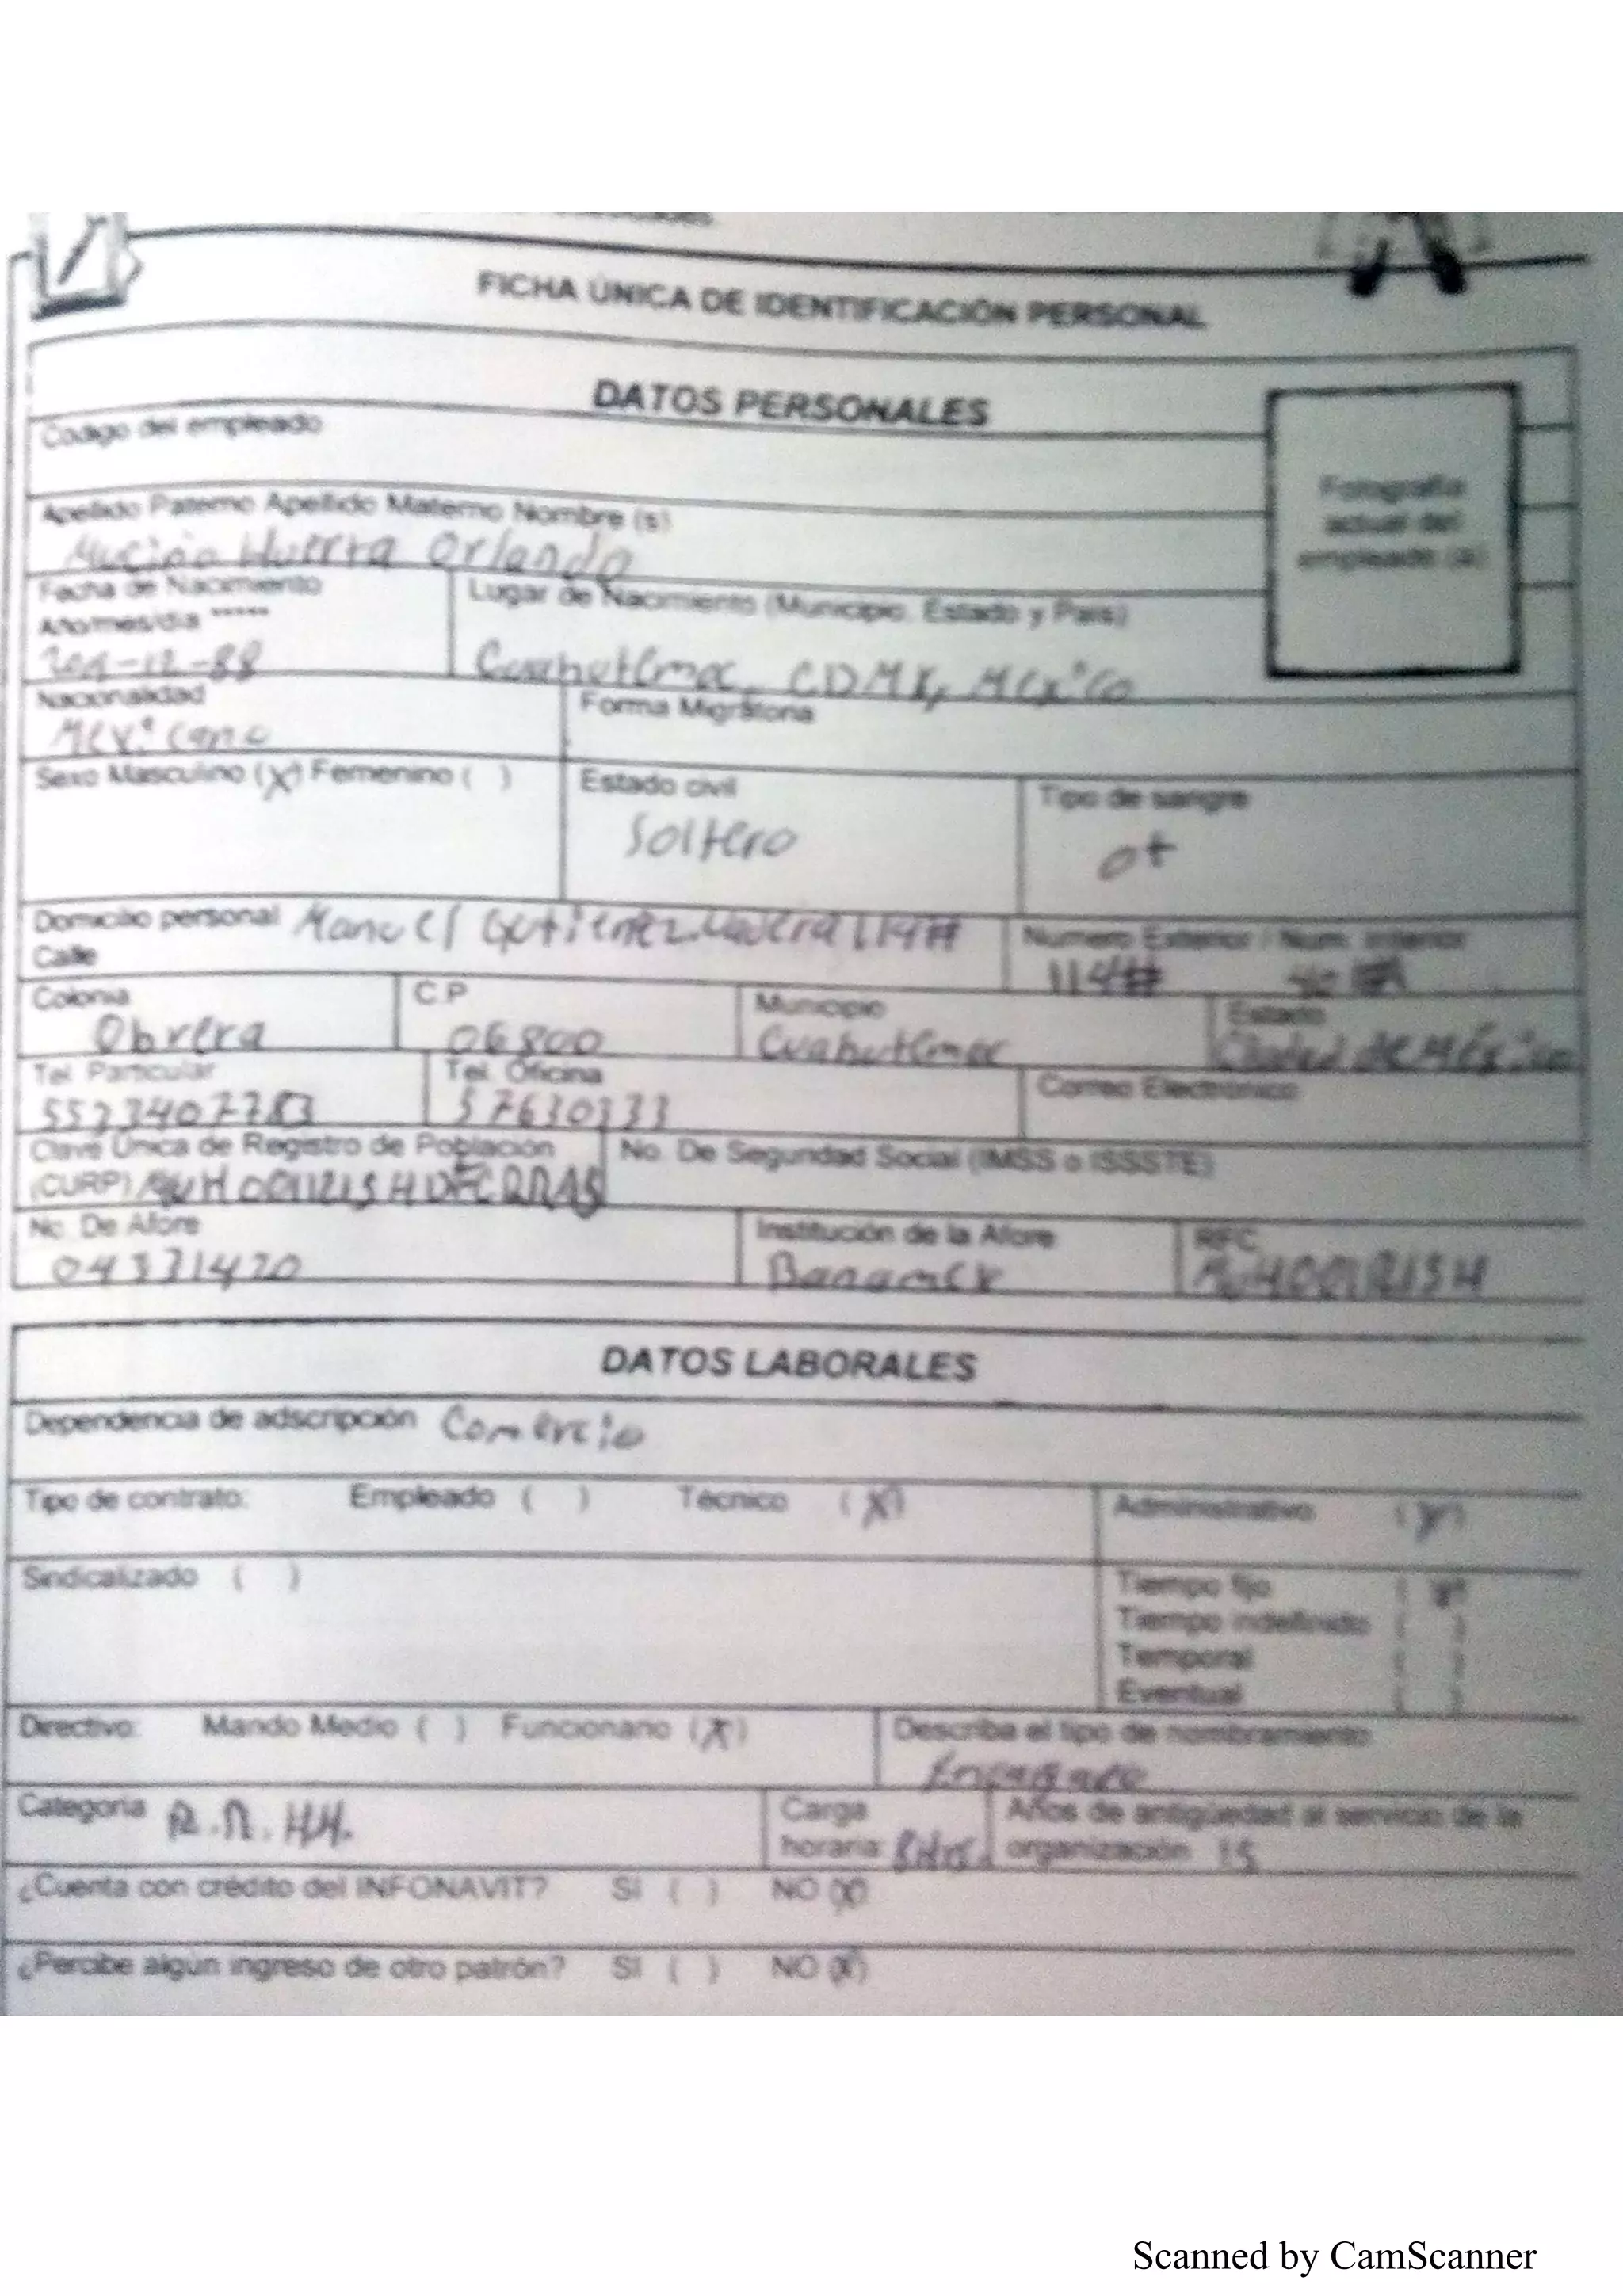 FICHA ÚNICA DE IDENTIFICACIÓN PERSONAL
DATOS PERSONALES
Codigo del empleado
Fotografía
actual del
empleado (a)
Apellido Paterno Apellido Materno Nombre (s)
Huerta Orlando
Fecha de Nacimiento
Año/mes/dia *****
Lugar de Nacimiento (Municipio, Estado y País)
-12-88
Cuahutemoc, CDMX, Mexico
Nacionalidad
Forma Migratoria
Mexicano
Sexo Masculino (X) Femenino ( )
Estado civil
Tipo de sangre
Soltero
O+
Domicilio personal Manuel Gutierrez 114#
Calle
Numero Exterior / Num. Interior
114#
Colonia
C.P
Municipio
Estado
Obrera
06800
Cuahutemoc
Ciudad de México
Tel. Particular
Tel. Oficina
Correo Electrónico
57630333
Clave Única de Registro de Población
(CURP)
No. De Seguridad Social (IMSS o ISSSTE)
No. De Afore
Institución de la Afore
RFC
04371420
Banamex
DATOS LABORALES
Dependencia de adscripción Comercio
Tipo de contrato: Empleado ( ) Técnico (X) Administrativo (X)
Sindicalizado ( )
Tiempo fijo (X)
Tiempo indefinido ( )
Temporal ( )
Eventual ( )
Directivo: Mando Medio ( ) Funcionario (X)
Describa el tipo de nombramiento
Categoría R.R.HH.
Carga
horaria
Años de antigüedad al servicio de la
organización 15
¿Cuenta con crédito del INFONAVIT? SI ( ) NO (X)
¿Percibe algún ingreso de otro patrón? SI ( ) NO (X)
Scanned by CamScanner